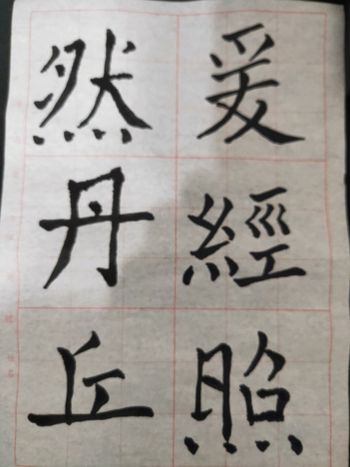 爰經照
然丹丘